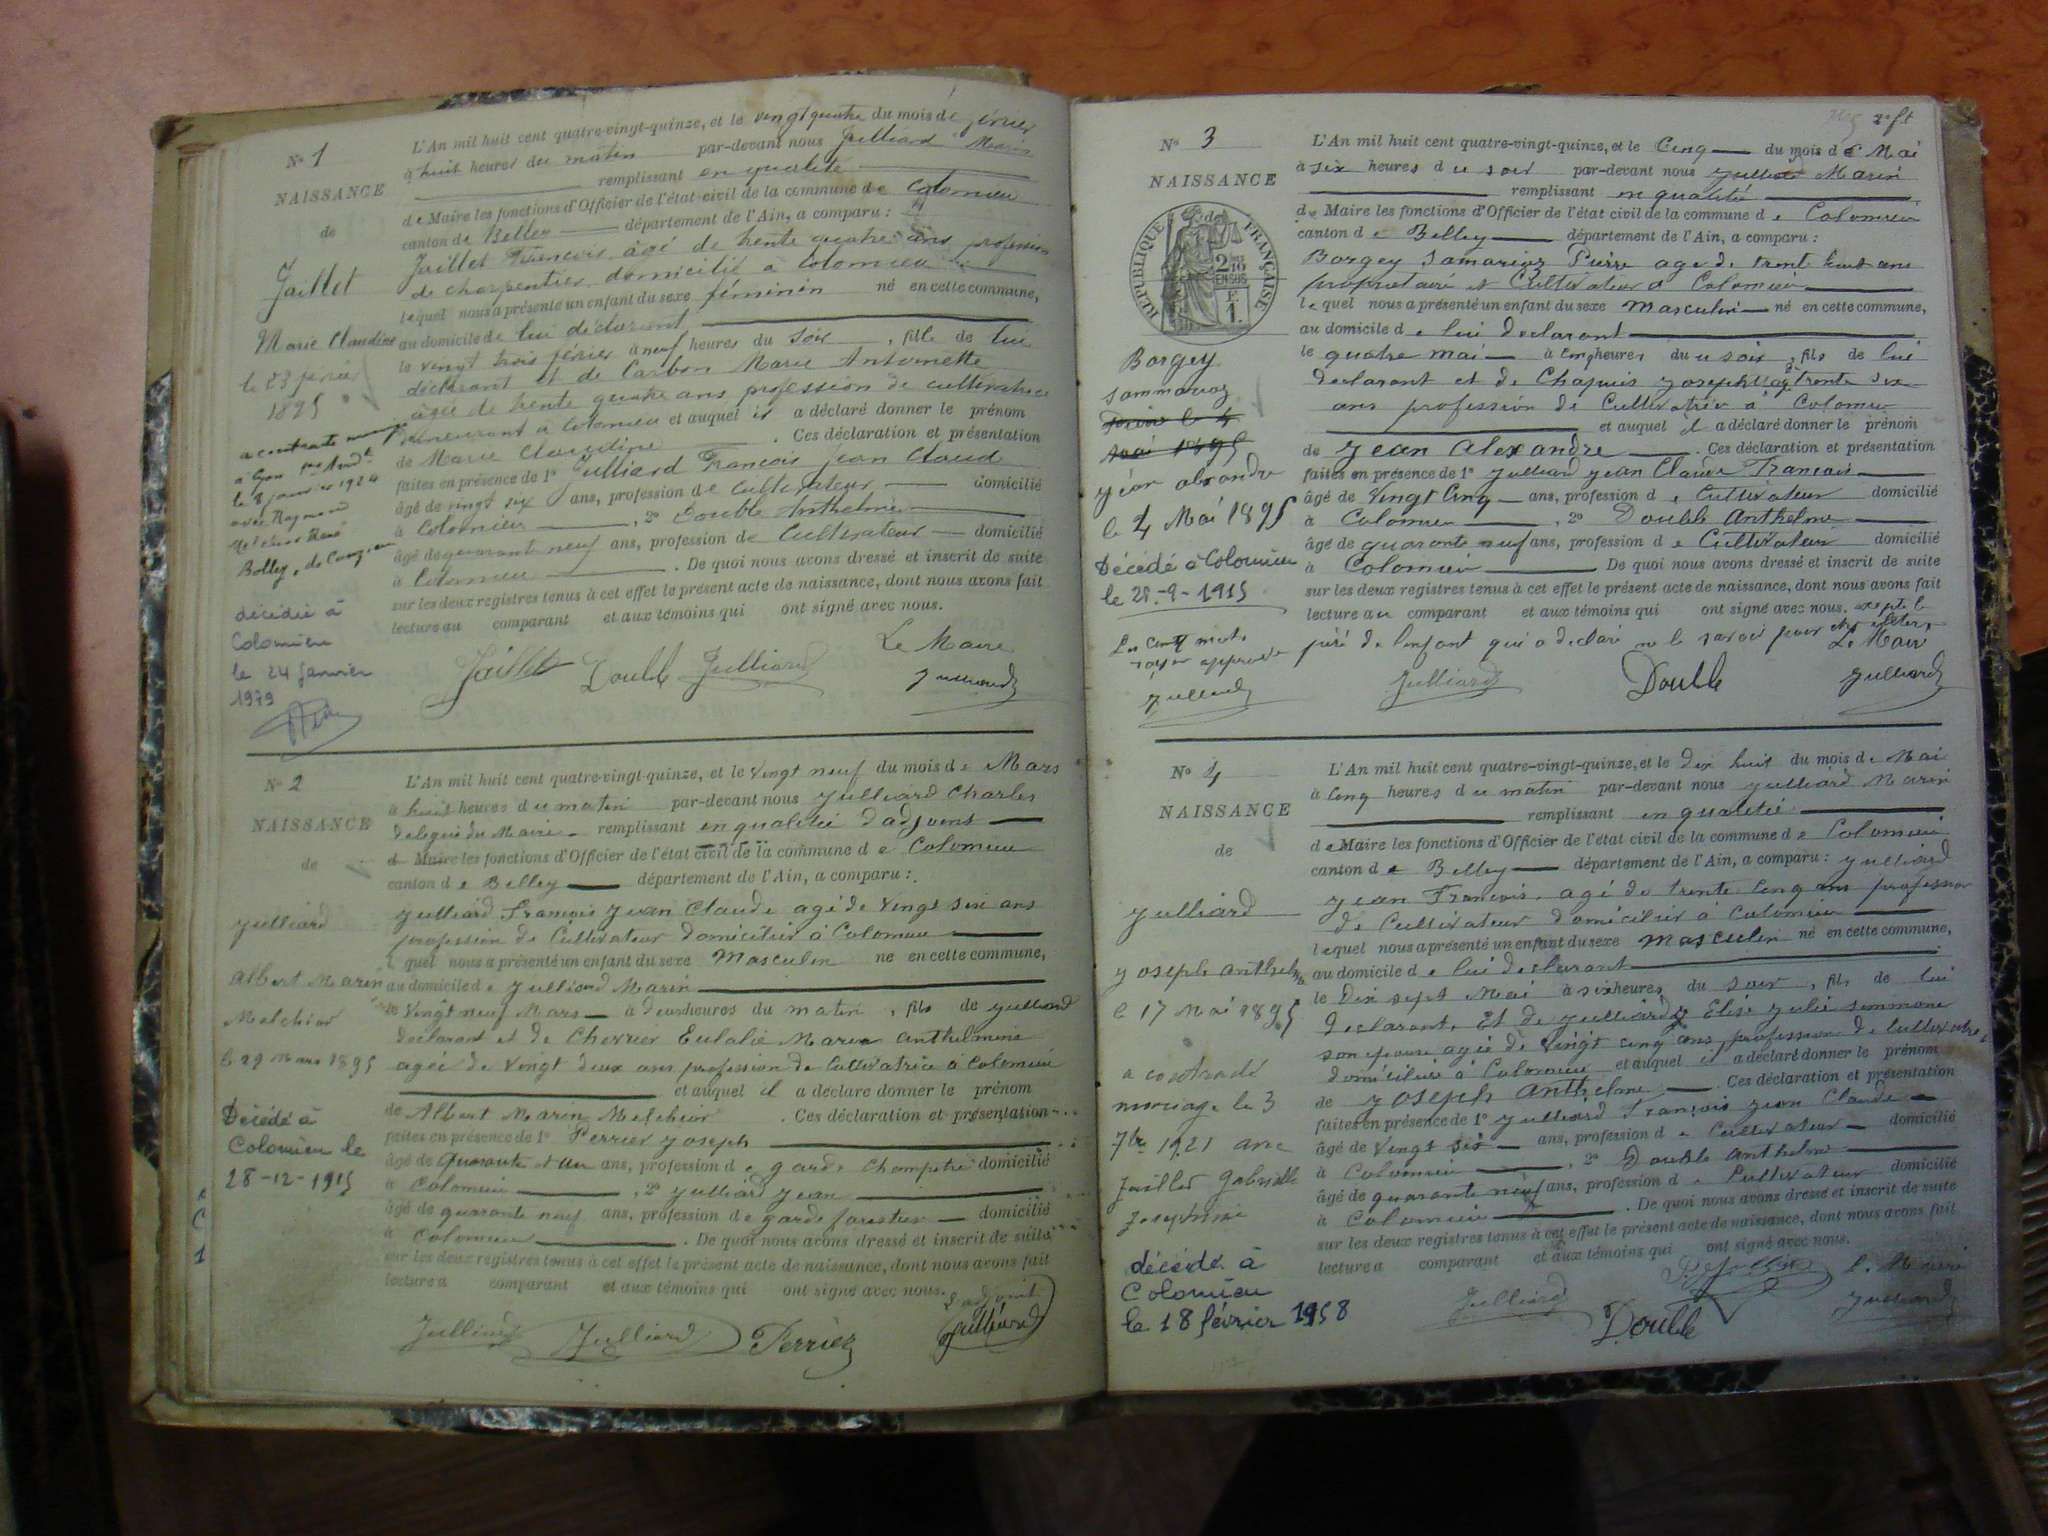 N° 1
NAISSANCE
de
Jaillet
Marie Claudine
le 23 février
1895
a contracté mariage
à Lyon
le 8 janvier 1924
avec Raymond
René
décédée à
Colomieu
le 24 Janvier
1979
L'An mil huit cent quatre-vingt-quinze, et le vingt quatre du mois de février
à huit heures du matin par-devant nous Julliard Marin
remplissant en qualité
de Maire les fonctions d'Officier de l'état civil de la commune de Colomieu
canton de Belley département de l'Ain, a comparu :
Jaillet François âgé de trente quatre ans profession
de charpentier domicilié à Colomieu
lequel nous a présenté un enfant du sexe féminin né en cette commune,
au domicile de lui déclarant
le vingt trois février à neuf heures du soir, fille de lui
déclarant et de Carbon Marie Antoinette
agée de trente quatre ans profession de cultivatrice
demeurant à Colomieu et auquel il a déclaré donner le prénom
de Marie Claudine . Ces déclaration et présentation
faites en présence de 1° Julliard François Jean Claud
âgé de vingt six ans, profession de cultivateur domicilié
à Colomieu , 2° Double Anthelme
âgé de quarant neuf ans, profession de Cultivateur domicilié
à Colomieu . De quoi nous avons dressé et inscrit de suite
sur les deux registres tenus à cet effet le présent acte de naissance, dont nous avons fait
lecture au comparant et aux témoins qui ont signé avec nous.
Le Maire
Jaillet Double Julliard Julliard
N° 2
NAISSANCE
de
Julliard
Albert Marin
Melchior
le 29 Mars 1895
Décédé à
Colomieu le
28-12-1915
L'An mil huit cent quatre-vingt-quinze, et le vingt neuf du mois de Mars
à huit heures du matin par-devant nous Julliard Charles
delegué du Maire remplissant en qualitée d'adjoint
d Maire les fonctions d'Officier de l'état civil de la commune de Colomieu
canton de Belley département de l'Ain, a comparu :
Julliard François Jean Claude agé de vingt six ans
profession de Cultivateur domicilier à Colomieu
l quel nous a présenté un enfant du sexe Masculin né en cette commune,
au domicile de Julliard Marin
le vingt neuf Mars à deux heures du matin, fils de Julliard
declarant et de Cherrier Eulalie Maria Anthelmine
agée de vingt deux ans profession de Cultivatrice à Colomieu
et auquel il a déclaré donner le prénom
de Albert Marin Melchior . Ces déclaration et présentation
faites en présence de 1° Perrier Joseph
âgé de Quarante et un ans, profession de garde Champetre domicilié
à Colomieu , 2° Julliard Jean
âgé de quarante neuf ans, profession de garde forestier domicilié
à Colomieu . De quoi nous avons dressé et inscrit de suite
sur les deux registres tenus à cet effet le présent acte de naissance, dont nous avons fait
lecture a comparant et aux témoins qui ont signé avec nous.
L'adjoint
Julliard Julliard Perrier Julliard
2e ft
N° 3
NAISSANCE
REPUBLIQUE FRANÇAISE
2/10 EN SUS
1.
Borgey
Sammarioz
Pierre le 4
Mai 1895
Jean alexandre
le 4 Mai 1895
Décédé à Colomieu
le 28-9-1915
Les cinq mots
rayer approuvé
Julliard
L'An mil huit cent quatre-vingt-quinze, et le Cinq du mois de Mai
à six heures du soir par-devant nous Julliard Marin
remplissant en qualité
de Maire les fonctions d'Officier de l'état civil de la commune de Colomieu
canton de Belley département de l'Ain, a comparu :
Borgey Samarioz Pierre age de trente huit ans
propriétaire et Cultivateur à Colomieu
lequel nous a présenté un enfant du sexe Masculin né en cette commune,
au domicile de lui declarant
le quatre mai à cinq heures du soir, fils de lui
declarant et de Chapuis Josephte age trente six
ans profession de Cultivatrice à Colomieu
et auquel il a déclaré donner le prénom
de Jean Alexandre . Ces déclaration et présentation
faites en présence de 1° Julliard Jean Claude François
âgé de Vingt Cinq ans, profession de Cultivateur domicilié
à Colomieu , 2° Double Anthelme
âgé de quarante neuf ans, profession de Cultivateur domicilié
à Colomieu De quoi nous avons dressé et inscrit de suite
sur les deux registres tenus à cet effet le présent acte de naissance, dont nous avons fait
lecture au comparant et aux témoins qui ont signé avec nous. exepté le
père de l'enfant qui a declaré ne le savoir pour
Le Maire
Julliard Double Julliard
N° 4
NAISSANCE
de
Julliard
Joseph Anthelme
le 17 Mai 1895
a contracté
mariage le 3
7bre 1921 avec
Jaillet Gabrielle
Josephine
décédé à
Colomieu
le 18 février 1958
L'An mil huit cent quatre-vingt-quinze, et le dix huit du mois de Mai
à Cinq heures du matin par-devant nous Julliard Marin
remplissant en qualitée
de Maire les fonctions d'Officier de l'état civil de la commune de Colomieu
canton de Belley département de l'Ain, a comparu : Julliard
Jean François agé de trente cinq ans profession
de Cultivateur domicilier à Colomieu
lequel nous a présenté un enfant du sexe Masculin né en cette commune,
au domicile de lui declarant
le Dix sept Mai à six heures du soir, fils de lui
declarant Et de Julliard Elise Julie
son epouse agée de vingt cinq ans profession de Cultivatrice
domiciliée à Colomieu et auquel il a déclaré donner le prénom
de Joseph Anthelme . Ces déclaration et présentation
faites en présence de 1° Julliard François Jean Claude
âgé de vingt six ans, profession de Cultivateur domicilié
à Colomieu , 2° Double Anthelme
âgé de quarante neuf ans, profession de Cultivateur domicilié
à Colomieu . De quoi nous avons dressé et inscrit de suite
sur les deux registres tenus à cet effet le présent acte de naissance, dont nous avons fait
lecture a comparant et aux témoins qui ont signé avec nous.
Le Maire
Julliard Double Julliard